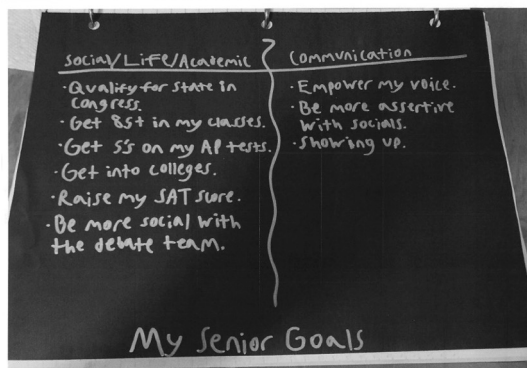 Social/Life/Academic
· Qualify for state in
congress.
· Get 85+ in my classes.
· Get 5's on my AP tests.
· Get into colleges.
· Raise my SAT score.
· Be more social with
the debate team.
Communication
· Empower my voice.
· Be more assertive
with socials.
· Showing up.
My Senior Goals